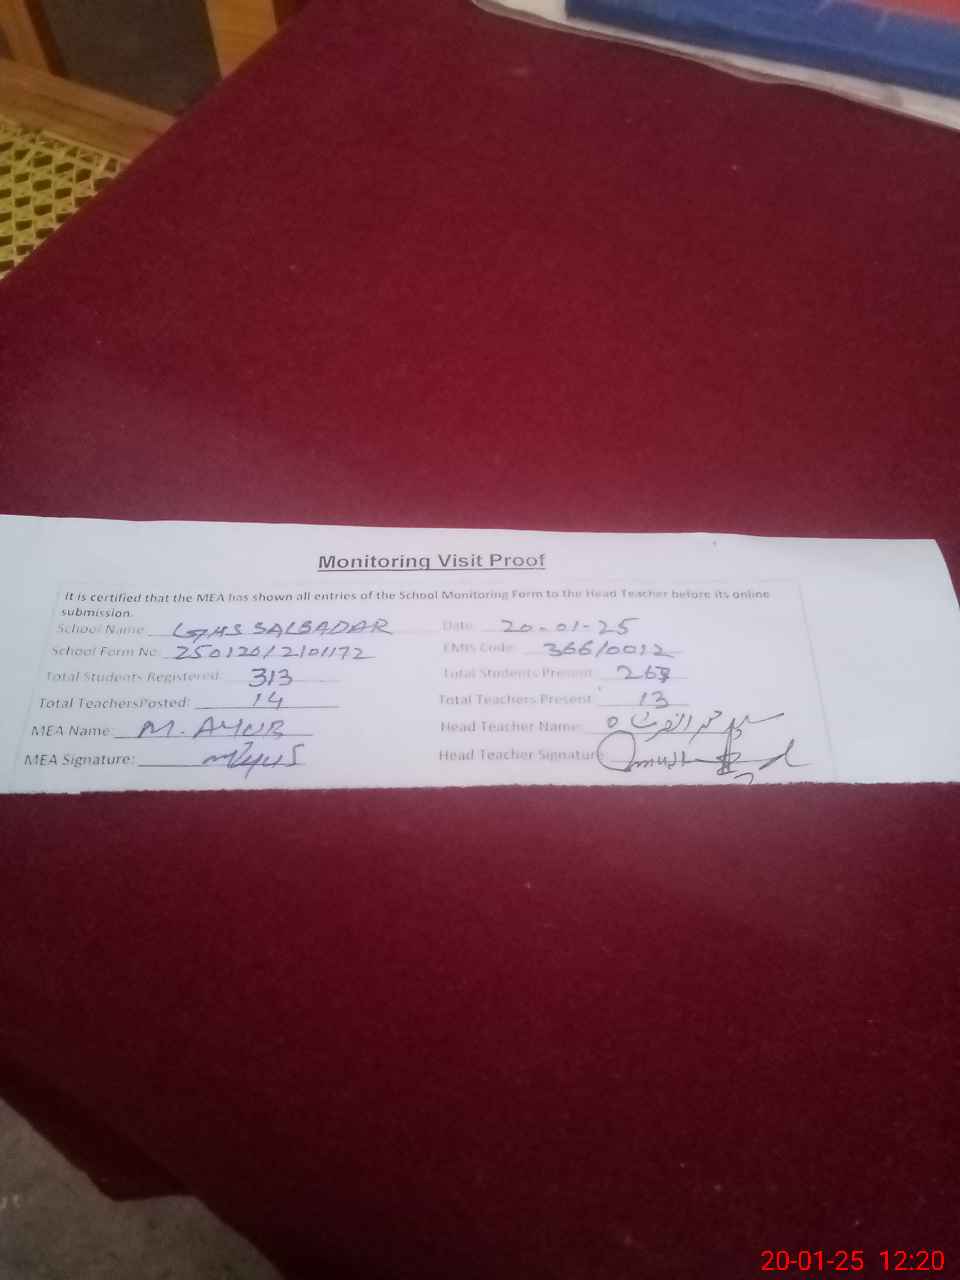 Monitoring Visit Proof
It is certified that the MEA has shown all entries of the School Monitoring Form to the Head Teacher before its online
submission.
School Name: GHS SALBADAR Date: 20-01-25
School Form No: 250120/2101172 EMIS Code: 366/0012
Total Students Registered: 313 Total Students Present: 268
Total TeachersPosted: 14 Total Teachers Present: 13
MEA Name: M. AYUB Head Teacher Name:
MEA Signature: Head Teacher Signature
20-01-25 12:20